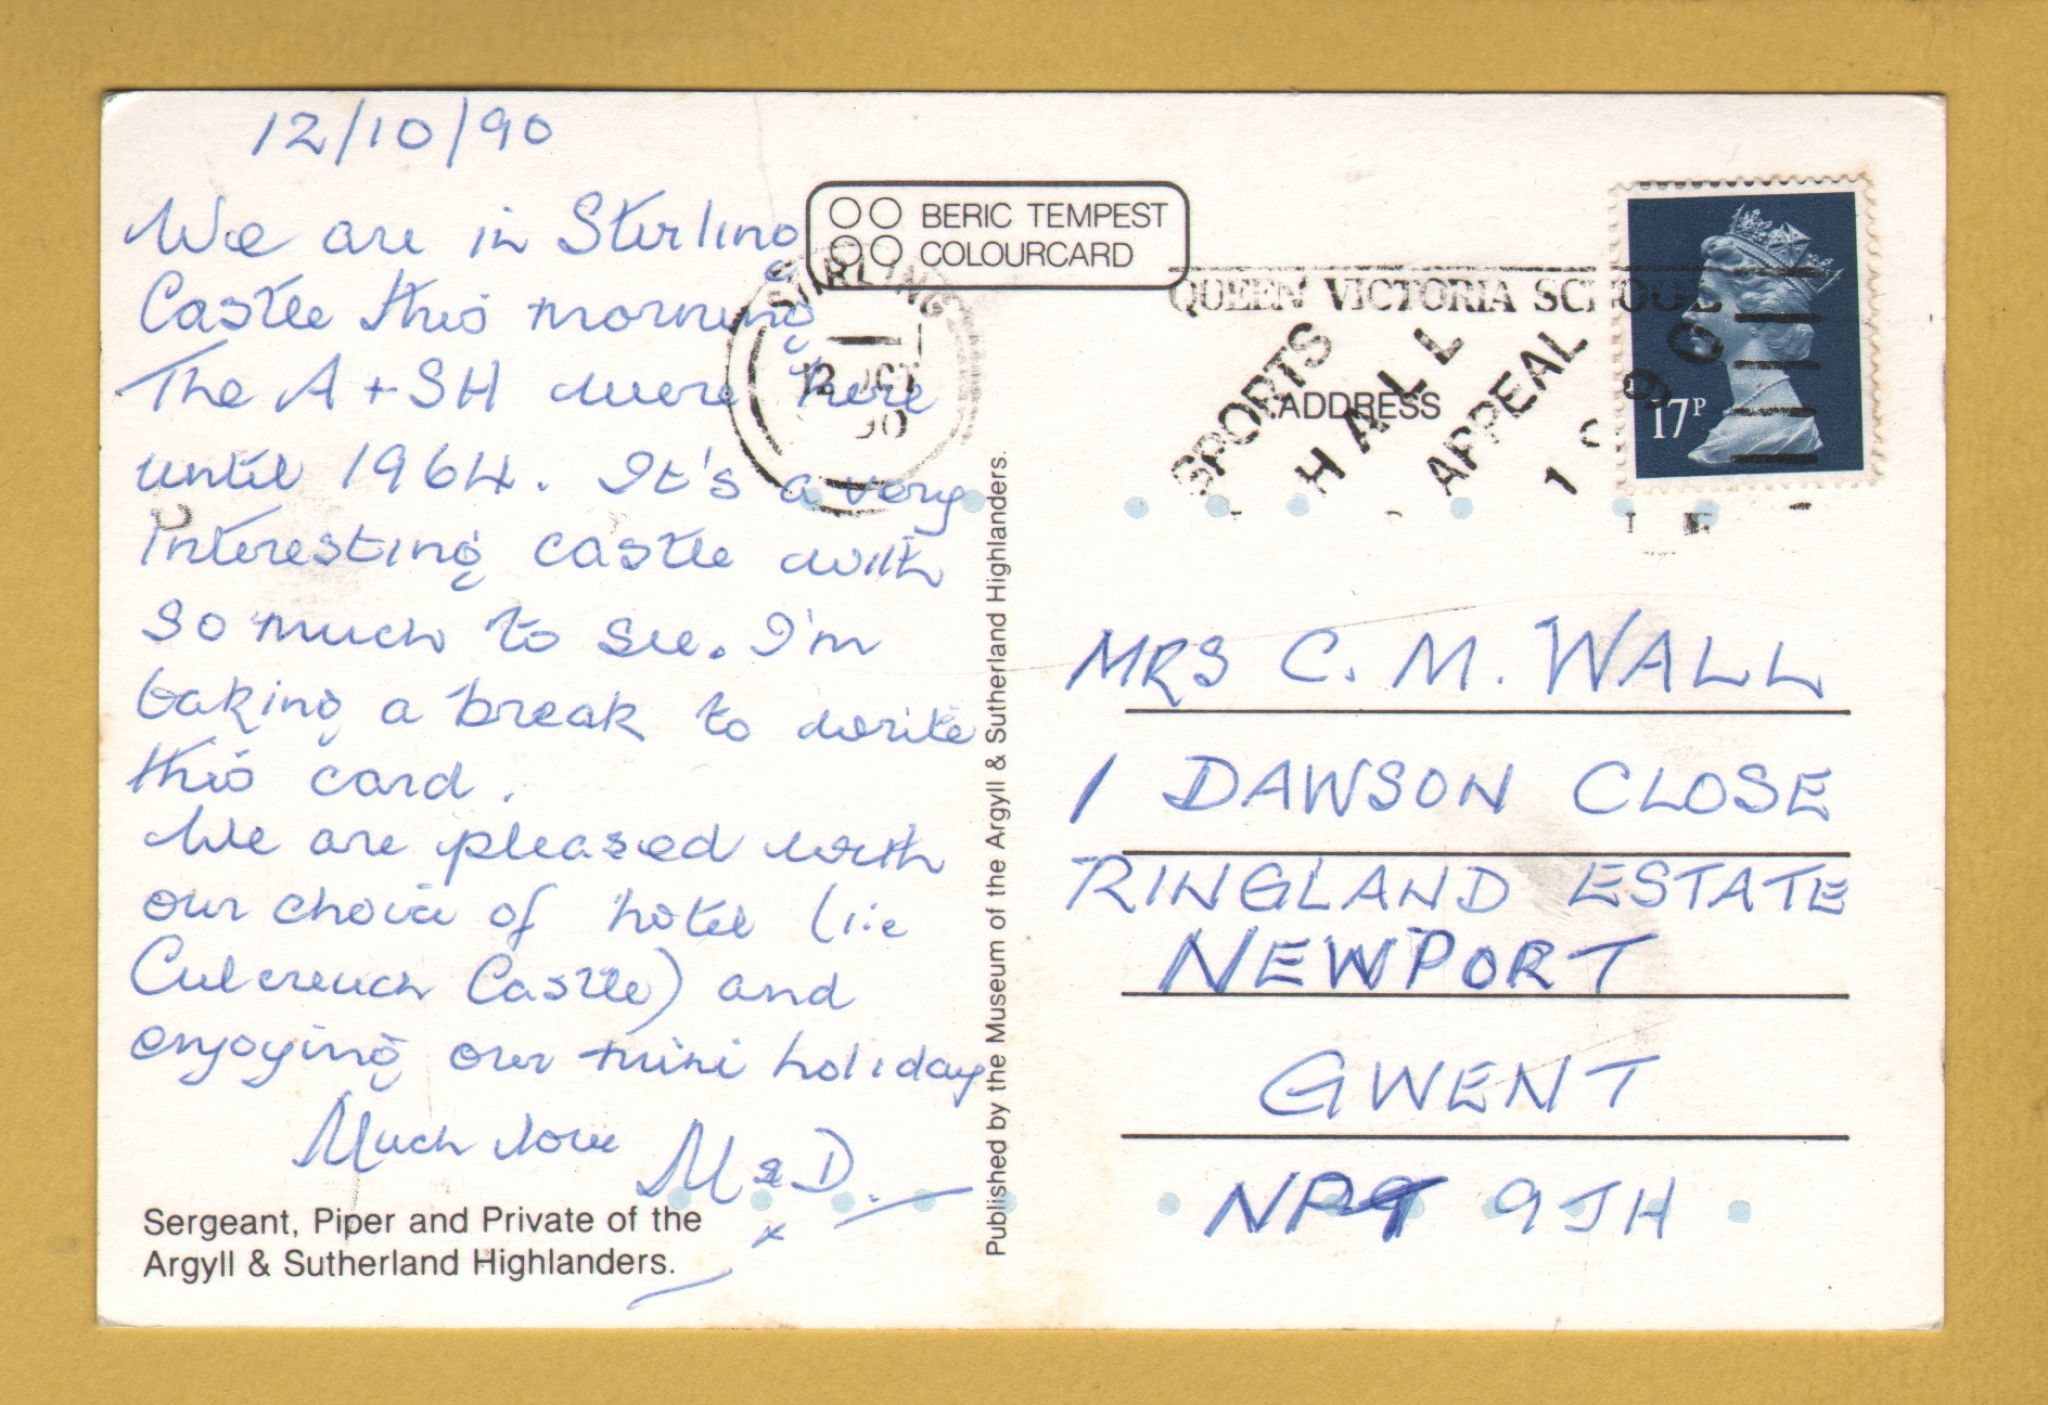 12/10/90
We are in Sterling
Castle this morning
The A + SH were here
until 1964. It's a very
interesting castle with
so much to see. I'm
taking a break to write
this card.
We are pleased with
our choice of hotel (i.e
Culcreuch Castle) and
enjoying our mini holiday
Much love M & D.
x
Sergeant, Piper and Private of the
Argyll & Sutherland Highlanders.
BERIC TEMPEST
COLOURCARD
STIRLING
12 OCT
90
Published by the Museum of the Argyll & Sutherland Highlanders.
QUEEN VICTORIA SCHOOL
SPORTS
HALL
APPEAL
1990
17P
ADDRESS
MRS C. M. WALL
1 DAWSON CLOSE
RINGLAND ESTATE
NEWPORT
GWENT
NP9 9JH